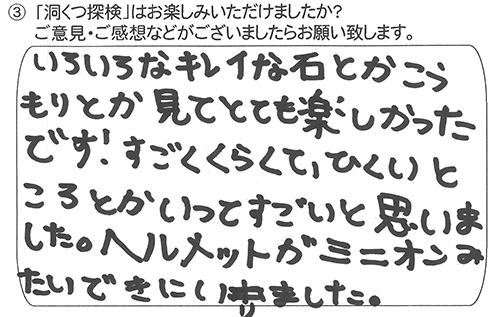 ③ 「洞くつ探検」はお楽しみいただけましたか?
ご意見・ご感想などがございましたらお願い致します。
いろいろなキレイな石とかこう
もりとか見てとても楽しかった
です!すごくくらくて,ひくいと
ころとかいってすごいと思いま
した。ヘルメットがミニオンみ
たいできにいりました。